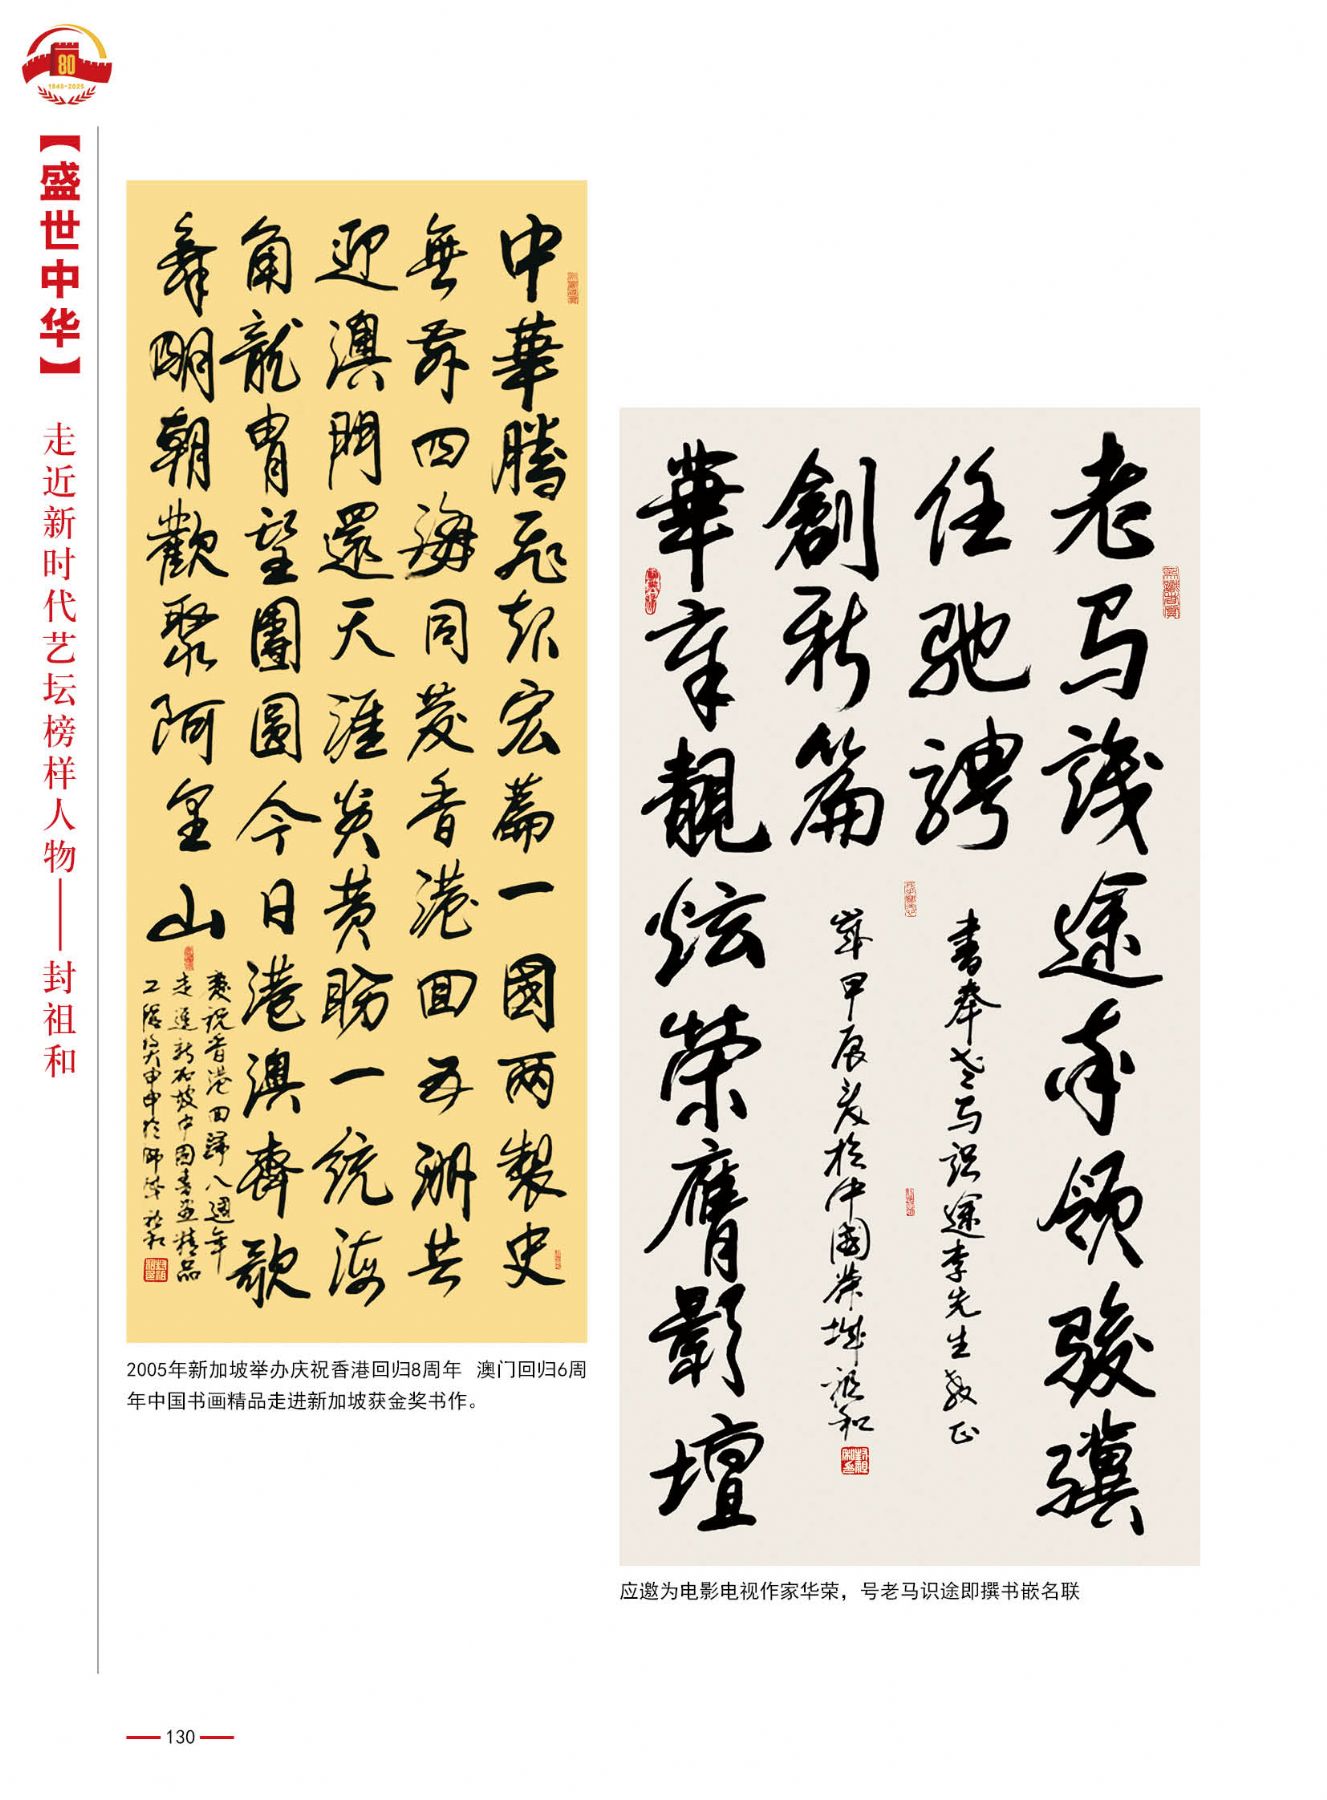 80
1945-2025
【盛世中华】
走近新时代艺坛榜样人物——封祖和
中華騰飛起宏篇一國兩製史
無前四海同慶香港回五洲共
迎澳門還天涯炎黃盼一統海
角龍胄望團圓今日港澳齊歌
舞明朝歡聚阿里山
慶祝香港回歸八週年
走進新加坡中國書畫精品
祖和
2005年新加坡举办庆祝香港回归8周年 澳门回归6周
年中国书画精品走进新加坡获金奖书作。
老马識途奔領骏骥
任驰骋
創新篇
華章靓炫榮膺影壇
書奉老马识途李先生教正
歲甲辰夏於中國祖和
应邀为电影电视作家华荣，号老马识途即撰书嵌名联
130